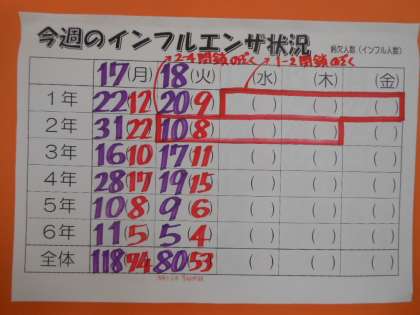 今週のインフルエンザ状況
総欠人数（インフル人数）
2-4閉鎖のぞく 1-2閉鎖のぞく
17(月) 18(火) (水) (木) (金)
1年 22(12) 20(9) ( ) ( ) ( )
2年 31(22) 10(8) ( ) ( ) ( )
3年 16(10) 17(11) ( ) ( ) ( )
4年 28(17) 19(15) ( ) ( ) ( )
5年 10(8) 9(6) ( ) ( ) ( )
6年 11(5) 5(4) ( ) ( ) ( )
全体 118(74) 80(53)